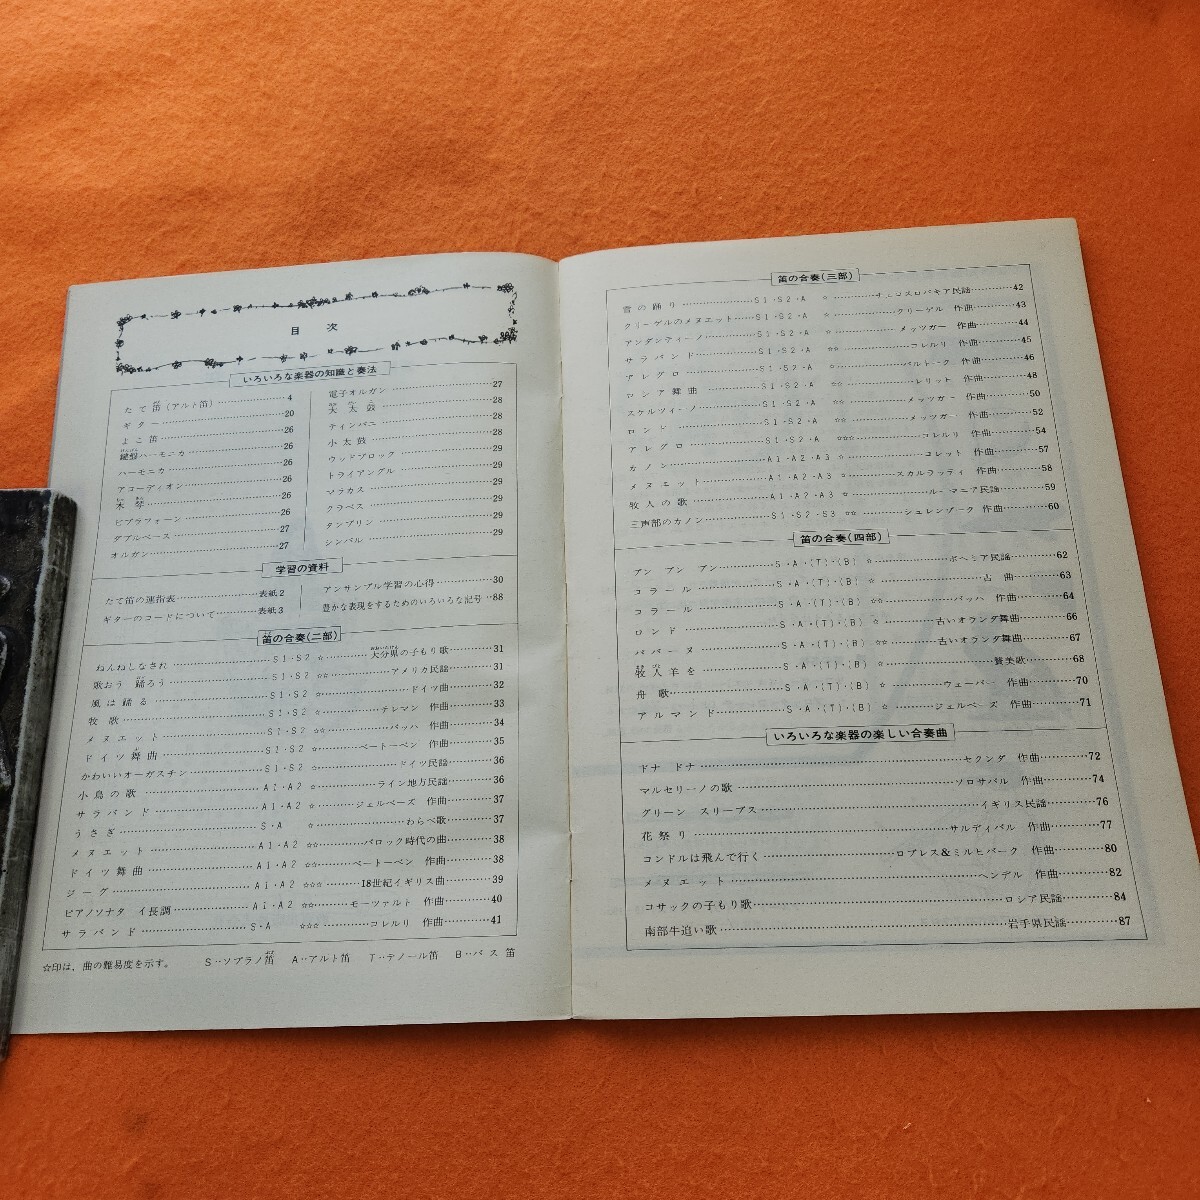 目次
いろいろな楽器の知識と奏法
たて笛(アルト笛)……4
ギター……20
よこ笛……26
鍵盤ハーモニカ……26
ハーモニカ……26
アコーディオン……26
木琴……26
ビブラフォーン……26
ダブルベース……27
オルガン……27
電子オルガン……27
大太鼓……28
ティンパニ……28
小太鼓……28
ウッドブロック……29
トライアングル……29
マラカス……29
クラベス……29
タンブリン……29
シンバル……29
学習の資料
たて笛の運指表……表紙2
ギターのコードについて……表紙3
アンサンブル学習の心得……30
豊かな表現をするためのいろいろな記号…88
笛の合奏(二部)
ねんねしなされ……S1・S2 ☆……大分県の子もり歌……31
歌おう 踊ろう……S1・S2 ☆☆……アメリカ民謡……31
風は踊る……S1・S2 ☆……ドイツ曲……32
牧歌……S1・S2 ☆☆……テレマン 作曲……33
メヌエット……S1・S2 ☆☆……バッハ 作曲……34
ドイツ舞曲……S1・S2 ☆……ベートーベン 作曲……35
かわいいオーガスチン……S1・S2 ☆☆……ドイツ民謡……36
小鳥の歌……A1・A2 ☆……ライン地方民謡……36
サラバンド……A1・A2 ☆……ジェルベーズ 作曲……37
うさぎ……S・A ☆……わらべ歌……37
メヌエット……A1・A2 ☆☆……バロック時代の曲……38
ドイツ舞曲……A1・A2 ☆☆……ベートーベン 作曲……38
ジーグ……A1・A2 ☆☆☆……18世紀イギリス曲……39
ピアノソナタ イ長調……A1・A2 ☆☆……モーツァルト 作曲……40
サラバンド……S・A ☆☆☆……コレルリ 作曲……41
☆印は、曲の難易度を示す。 S‥ソプラノ笛 A‥アルト笛 T‥テノール笛 B‥バス笛
笛の合奏(三部)
雪の踊り……S1・S2・A ☆……チェコスロバキア民謡……42
クリーゲルのメヌエット……S1・S2・A ☆……クリーゲル 作曲……43
アンダンティーノ……S1・S2・A ☆……メッツガー 作曲……44
サラバンド……S1・S2・A ☆☆……コレルリ 作曲……45
アレグロ……S1・S2・A ☆……バルトーク 作曲……46
ロシア舞曲……S1・S2・A ☆☆……レリット 作曲……48
スケルツィーノ……S1・S2・A ☆☆……メッツガー 作曲……50
ロンド……S1・S2・A ☆☆……メッツガー 作曲……52
アレグロ……S1・S2・A ☆☆☆……コレルリ 作曲……54
カノン……A1・A2・A3 ☆……コレット 作曲……57
メヌエット……A1・A2・A3 ☆……スカルラッティ 作曲……58
牧人の歌……A1・A2・A3 ☆……ルーマニア民謡……59
三声部のカノン……S1・S2・S3 ☆☆……シュレンゾーク 作曲……60
笛の合奏(四部)
アン ブン ブン……S・A・(T)・(B) ☆……ボヘミア民謡……62
コラール……S・A・(T)・(B) ☆……古曲……63
コラール……S・A・(T)・(B) ☆☆……バッハ 作曲……64
ロンド……S・A・(T)・(B) ☆……古いオランダ舞曲……66
パバーヌ……S・A・(T)・(B) ☆☆……古いオランダ舞曲……67
牧人羊を……S・A・(T)・(B) ☆……賛美歌……68
舟歌……S・A・(T)・(B) ☆……ウェーバー 作曲……70
アルマンド……S・A・(T)・(B) ☆……ジェルベーズ 作曲……71
いろいろな楽器の楽しい合奏曲
ドナ ドナ……セクンダ 作曲……72
マルセリーノの歌……ソロサバル 作曲……74
グリーン スリーブス……イギリス民謡……76
花祭り……サルディバル 作曲……77
コンドルは飛んで行く……ロブレス&ミルヒバーク 作曲……80
メヌエット……ヘンデル 作曲……82
コサックの子もり歌……ロシア民謡……84
南部牛追い歌……岩手県民謡……87